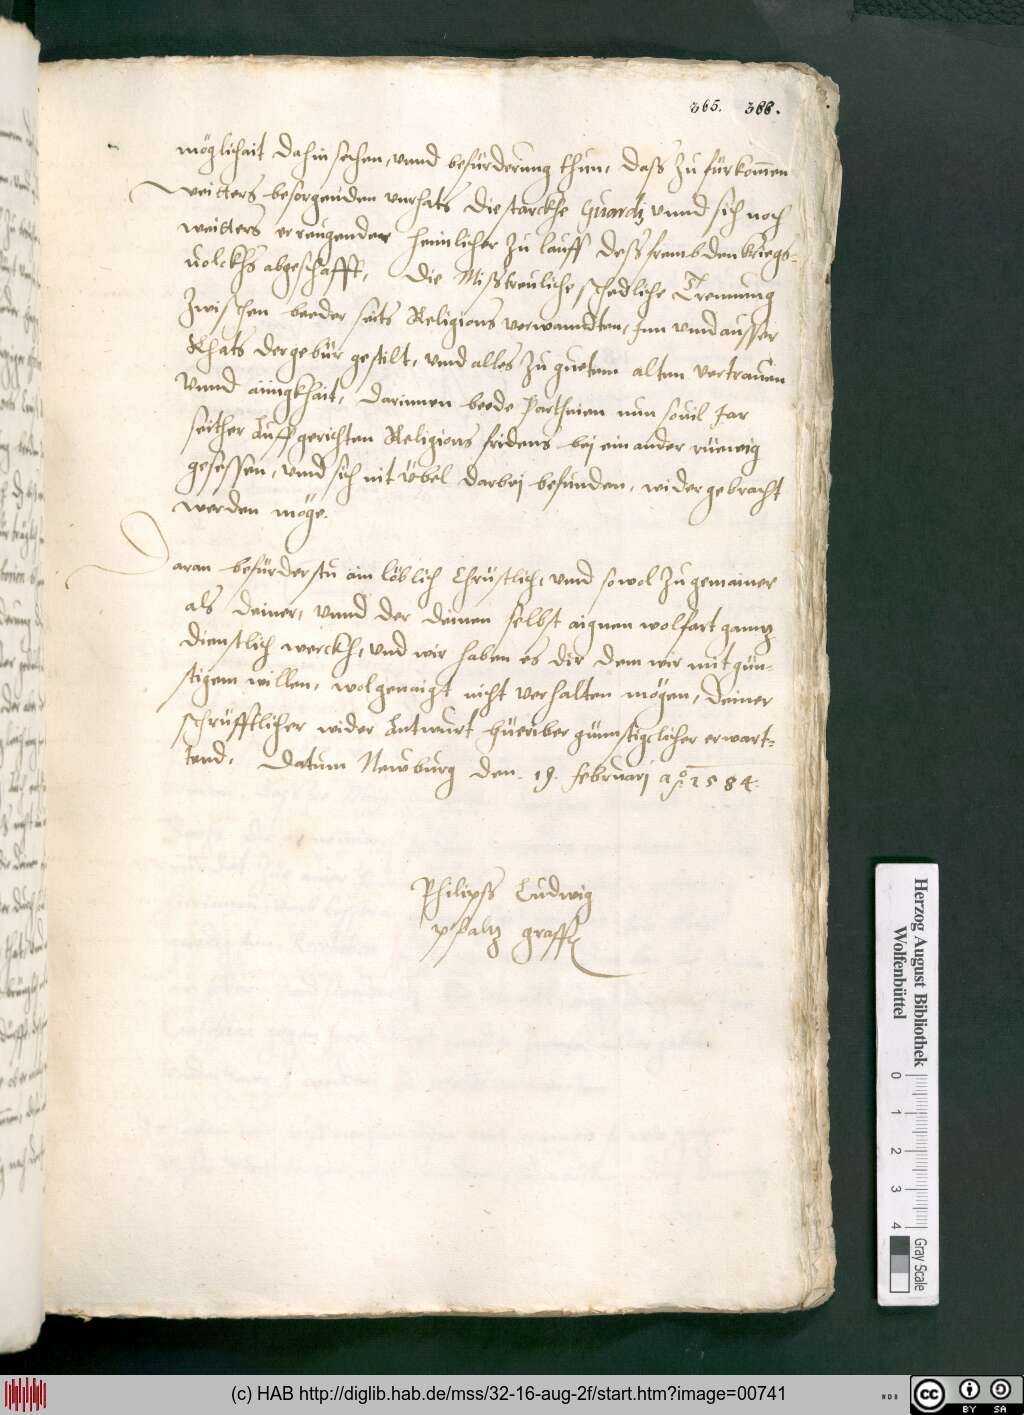 365. 388.
möglichait dahin sehen, vnnd befürderung thun, daß zu fürkom̄en
weitters besorgenden vnrhats die starckhe Guardi vnnd sich noch
weitters erreugender heimlicher zulauff deß frembden kriegs-
uolckhs abgeschafft, die Mißtreuliche schedliche Trennung
zwischen beeder seits Religions verwanndten, inn vnd ausser
Rhats der gebür gestilt, vnd alles zu guetem altem vertrauen
vnnd ainigkhait, darinnen beede Partheien nun souil Jar
seither Auffgerichten Religions fridens bej einander rüewig
gesessen, vnnd sich nit übel darbej befunden, widergebracht
werden möge.
Daran befürderstu ain löblich Christlich, vnd sowol zu gemainer
als deiner, vnnd der deinen selbst aignen wolfart gantz
dienstlich werckh, vnd wir haben es dir dem wir mit gün-
stigem willen, wolgenaigt nicht verhalten mögen, deiner
schrüfftlicher wider Antwurt hüerüber günstigclicher erwart-
tend. Datum Newburg den. 19. Februarj Ao 1584.
Philipß Ludwig
Pfaltzgraff
Herzog August Bibliothek
Wolfenbüttel
0 1 2 3 4
Gray Scale
(c) HAB http://diglib.hab.de/mss/32-16-aug-2f/start.htm?image=00741
WDB
cc BY SA